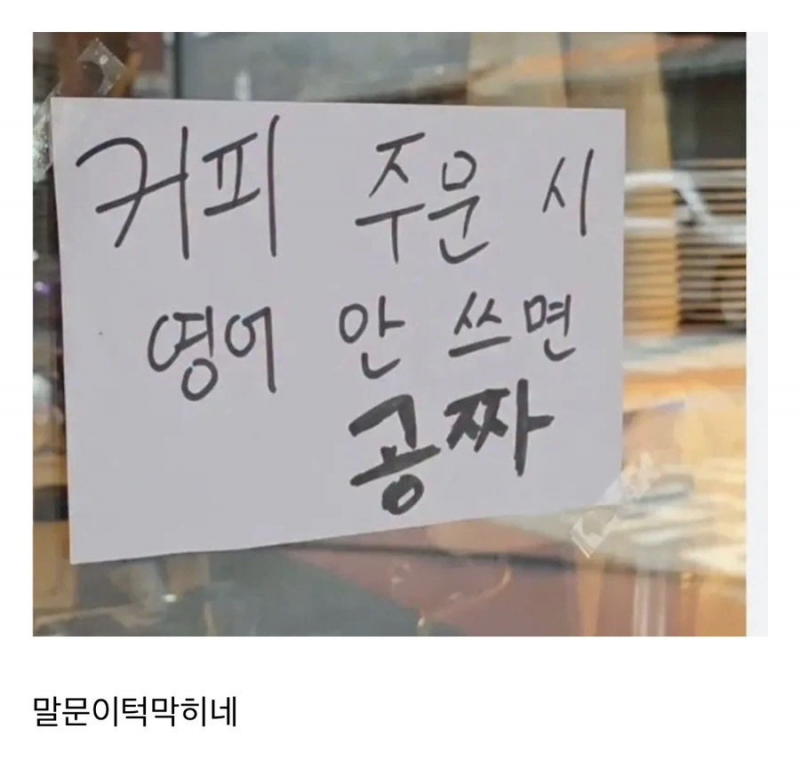 커피 주문 시
영어 안 쓰면
공짜
말문이턱막히네